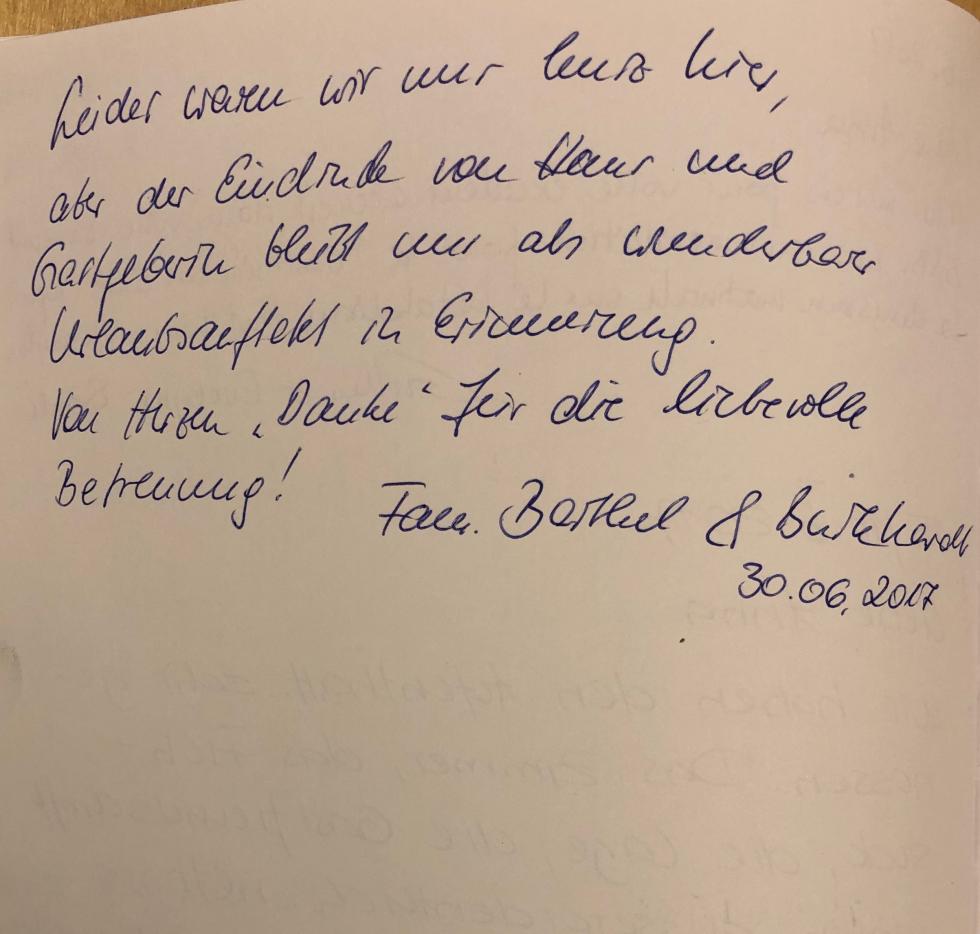 Leider waren wir nur kurz hier,
aber der Eindruck von Haus und
Gastgeberin bleibt uns als wunderbarer
Urlaubsauftakt in Erinnerung.
Von Herzen „Danke“ für die liebevolle
Betreuung!
Fam. Barthel & Burkhardt
30.06.2017